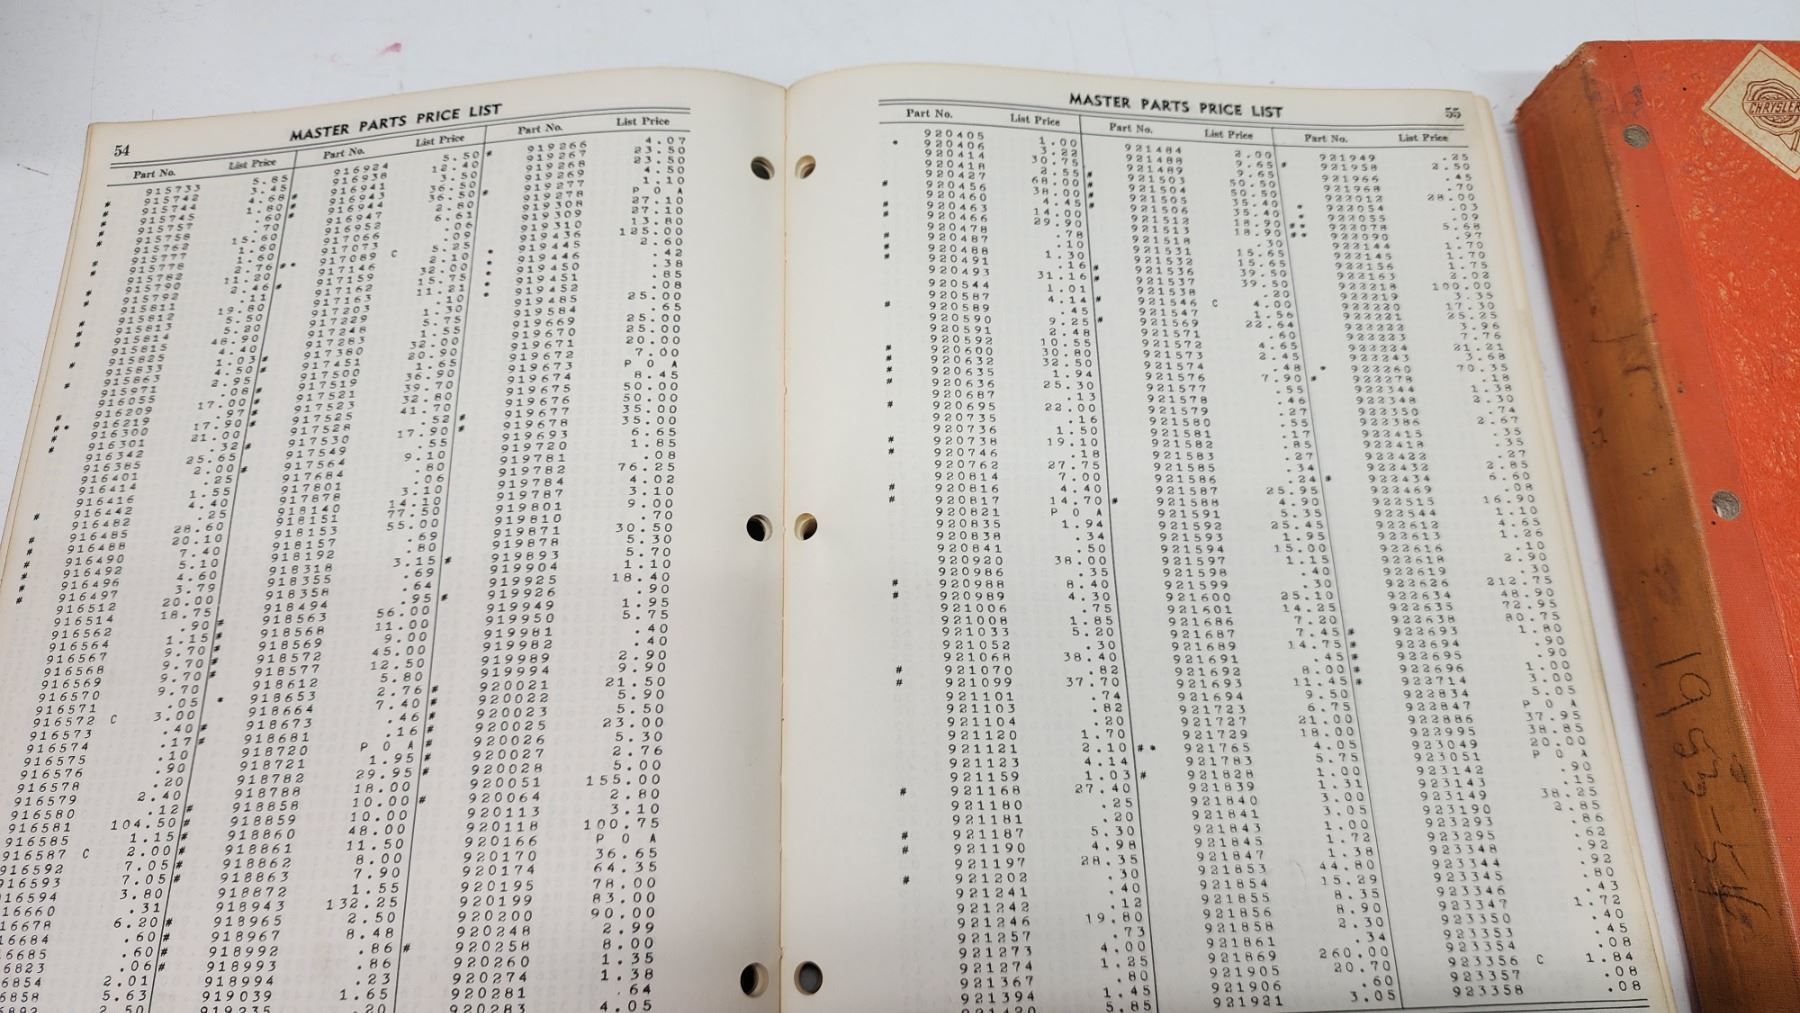 54
MASTER PARTS PRICE LIST
Part No. List Price Part No. List Price Part No. List Price
915733 5.85
915742 3.45
915744 4.68
915745 1.80
915757 .60
915758 .70
915762 15.60
915777 1.60
915778 1.60
915782 2.76
915790 11.20
915792 2.46
915811 .11
915812 19.80
915813 5.50
915814 5.20
915815 48.90
915825 4.40
915833 1.03
915863 4.50
915971 2.95
916055 .08
916209 17.00
916219 .97
916300 17.90
916301 21.00
916342 .32
916385 25.65
916401 2.00
916414 .25
916416 1.55
916442 4.40
916482 .25
916485 28.60
916488 20.10
916490 7.40
916492 5.10
916496 4.60
916497 3.79
916512 20.00
916514 18.75
916562 .90
916564 1.15
916567 9.70
916568 9.70
916569 9.70
916570 9.70
916571 .05
916572 C 3.00
916573 .40
916574 .17
916575 .10
916576 .90
916578 .20
916579 2.40
916580 .12
916581 104.50
916585 1.15
916587 C 2.00
916592 7.05
16593 7.05
16594 3.80
16660 .31
16678 6.20
16684 .60
6685 .60
6823 .06
6854 2.01
6858 5.63
916924 5.50
916938 12.40
916941 3.50
916943 36.50
916944 36.50
916947 2.80
916952 6.61
917066 .06
917073 .09
917089 C 5.25
917146 2.10
917159 32.00
917162 15.75
917163 11.21
917203 .10
917229 1.30
917248 5.75
917283 1.55
917380 32.00
917451 20.90
917500 1.65
917519 36.90
917521 39.70
917523 32.80
917525 41.70
917528 .52
917530 17.90
917549 .55
917564 9.10
917684 .80
917801 .06
917878 3.10
918140 14.10
918151 77.50
918153 55.00
918157 .69
918192 .80
918318 3.15
918355 .69
918358 .64
918494 .95
918563 56.00
918568 11.00
918569 9.00
918572 45.00
918577 12.50
918612 5.80
918653 2.76
918664 7.40
918673 .46
918681 .16
918720 P O A
918721 1.95
918782 29.95
918788 18.00
918858 10.00
918859 10.00
918860 48.00
918861 11.50
918862 8.00
918863 7.90
918872 1.55
918943 132.25
918965 2.50
918967 8.48
918992 .86
918993 .86
918994 .23
919039 1.65
919235 .20
919266 4.07
919267 23.50
919268 23.50
919269 4.50
919277 1.10
919278 P O A
919308 27.10
919309 27.10
919310 13.80
919436 125.00
919445 2.60
919446 .42
919450 .38
919451 .85
919452 .08
919485 25.00
919584 .65
919669 25.00
919670 25.00
919671 20.00
919672 7.00
919673 P O A
919674 8.45
919675 50.00
919676 50.00
919677 35.00
919678 35.00
919693 6.65
919720 1.85
919781 .08
919782 76.25
919784 4.02
919787 3.10
919801 9.00
919810 .70
919871 30.50
919878 5.30
919893 5.70
919904 1.10
919925 18.40
919926 .90
919949 1.95
919950 5.75
919981 .40
919982 .40
919989 2.90
919994 9.90
920021 21.50
920022 5.90
920023 5.50
920025 23.00
920026 5.30
920027 2.76
920028 5.00
920051 155.00
920064 2.80
920113 3.10
920118 100.75
920166 P O A
920170 36.65
920174 64.35
920195 78.00
920199 83.00
920200 90.00
920248 2.99
920258 8.00
920260 1.35
920274 1.38
920281 .64
920283 4.05
MASTER PARTS PRICE LIST
55
Part No. List Price Part No. List Price Part No. List Price
920405 1.00
920406 3.22
920414 30.75
920418 2.55
920427 68.00
920456 38.00
920460 4.45
920463 14.00
920466 29.90
920478 .78
920487 .10
920488 1.30
920491 .16
920493 31.16
920544 1.01
920587 4.14
920589 .45
920590 9.25
920591 2.48
920592 10.55
920600 30.80
920632 32.50
920635 1.94
920636 25.30
920687 .13
920695 22.00
920735 .16
920736 1.50
920738 19.10
920746 .18
920762 27.75
920814 7.00
920816 4.40
920817 14.70
920821 P O A
920835 1.94
920838 .34
920841 .50
920920 38.00
920986 .35
920988 8.40
920989 4.30
921006 .75
921008 1.85
921033 5.20
921052 .30
921068 38.40
921070 .82
921099 37.70
921101 .74
921103 .82
921104 .20
921120 1.70
921121 2.10
921123 4.14
921159 1.03
921168 27.40
921180 .25
921181 .20
921187 5.30
921190 4.98
921197 28.35
921202 .30
921241 .40
921242 .12
921246 19.80
921257 .73
921273 4.00
921274 1.25
921367 .80
921394 1.45
5.85
921484 2.00
921488 9.65
921489 9.65
921503 50.50
921504 50.50
921505 35.40
921506 35.40
921512 18.90
921513 18.90
921518 .30
921531 15.65
921532 15.65
921536 39.50
921537 39.50
921538 .20
921546 C 4.00
921547 1.56
921569 22.64
921571 .60
921572 4.65
921573 2.45
921574 .48
921576 7.90
921577 .55
921578 .46
921579 .27
921580 .55
921581 .17
921582 .85
921583 .27
921585 .34
921586 .24
921587 25.95
921588 4.90
921591 5.35
921592 25.45
921593 1.95
921594 15.00
921597 1.15
921598 .40
921599 .30
921600 25.10
921601 14.25
921686 7.20
921687 7.45
921689 14.75
921691 .45
921692 8.00
921693 11.45
921694 9.50
921723 6.75
921727 21.00
921729 18.00
921765 4.05
921783 5.75
921828 1.00
921839 1.31
921840 3.00
921841 3.05
921843 1.00
921845 1.72
921847 1.38
921853 44.80
921854 15.29
921855 8.35
921856 8.90
921858 2.30
921861 .34
921869 260.00
921905 20.70
921906 .60
921921 3.05
921949 .25
921958 2.50
921966 .45
921968 .70
922012 28.00
922054 .03
922055 .09
922078 5.68
922090 .97
922144 1.70
922145 1.70
922156 1.75
922163 2.02
922218 100.00
922219 3.35
922220 17.30
922221 25.25
922222 3.96
922223 7.76
922224 21.21
922243 3.68
922260 70.35
922278 .18
922344 1.38
922348 2.30
922350 .74
922386 2.67
922415 .35
922418 .35
922422 .27
922432 2.85
922434 6.60
922469 .08
922515 16.90
922544 1.10
922612 4.65
922613 1.26
922616 .10
922618 2.90
922619 .30
922626 212.75
922634 48.90
922635 72.95
922638 80.75
922693 1.80
922694 .90
922695 .90
922696 1.00
922714 3.00
922834 5.05
922847 P O A
922886 37.95
922995 38.85
923049 20.00
923051 P O A
923142 .90
923143 .15
923149 38.25
923190 2.85
923293 .86
923295 .62
923348 .92
923344 .92
923345 .80
923346 .43
923347 1.72
923350 .40
923353 .45
923354 .08
923356 C 1.84
923357 .08
923358 .08
CHRYSLER
1953-54